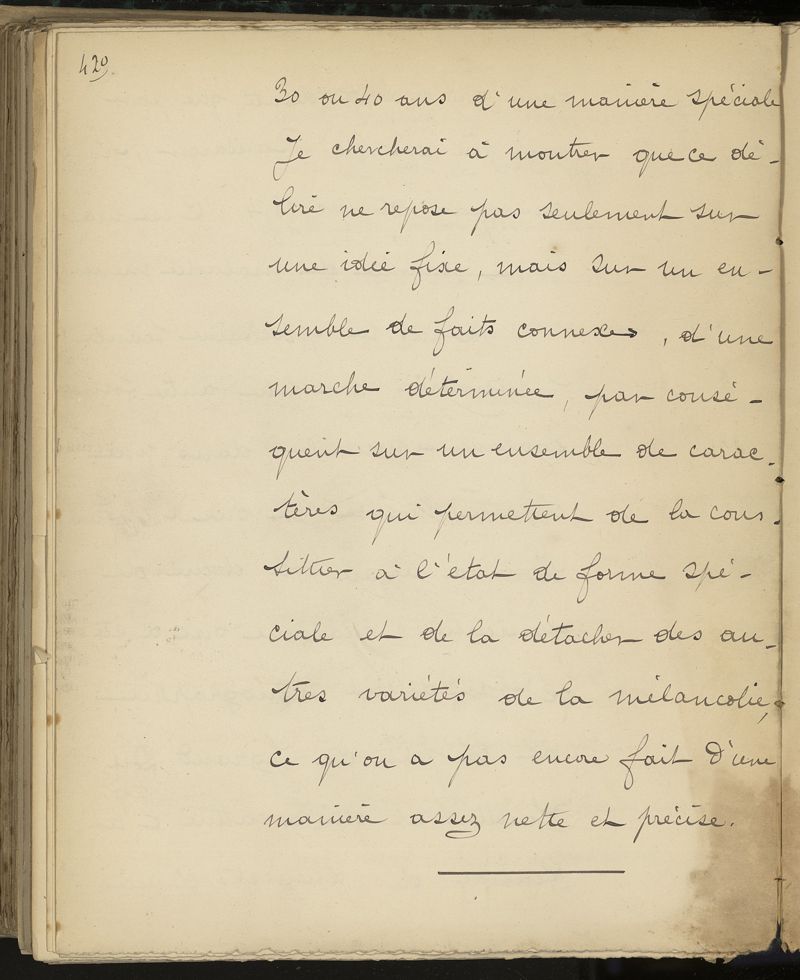 420
30 ou 40 ans d'une manière spéciale
Je chercherai à montrer que ce dé-
lire ne repose pas seulement sur
une idée fixe, mais sur un en-
semble de faits connexes, d'une
marche déterminée, par consé-
quent sur un ensemble de carac-
tères qui permettent de la cons-
tituer à l'état de forme spé-
ciale et de la détacher des au-
tres variétés de la mélancolie,
ce qu'on a pas encore fait d'une
manière assez nette et précise.